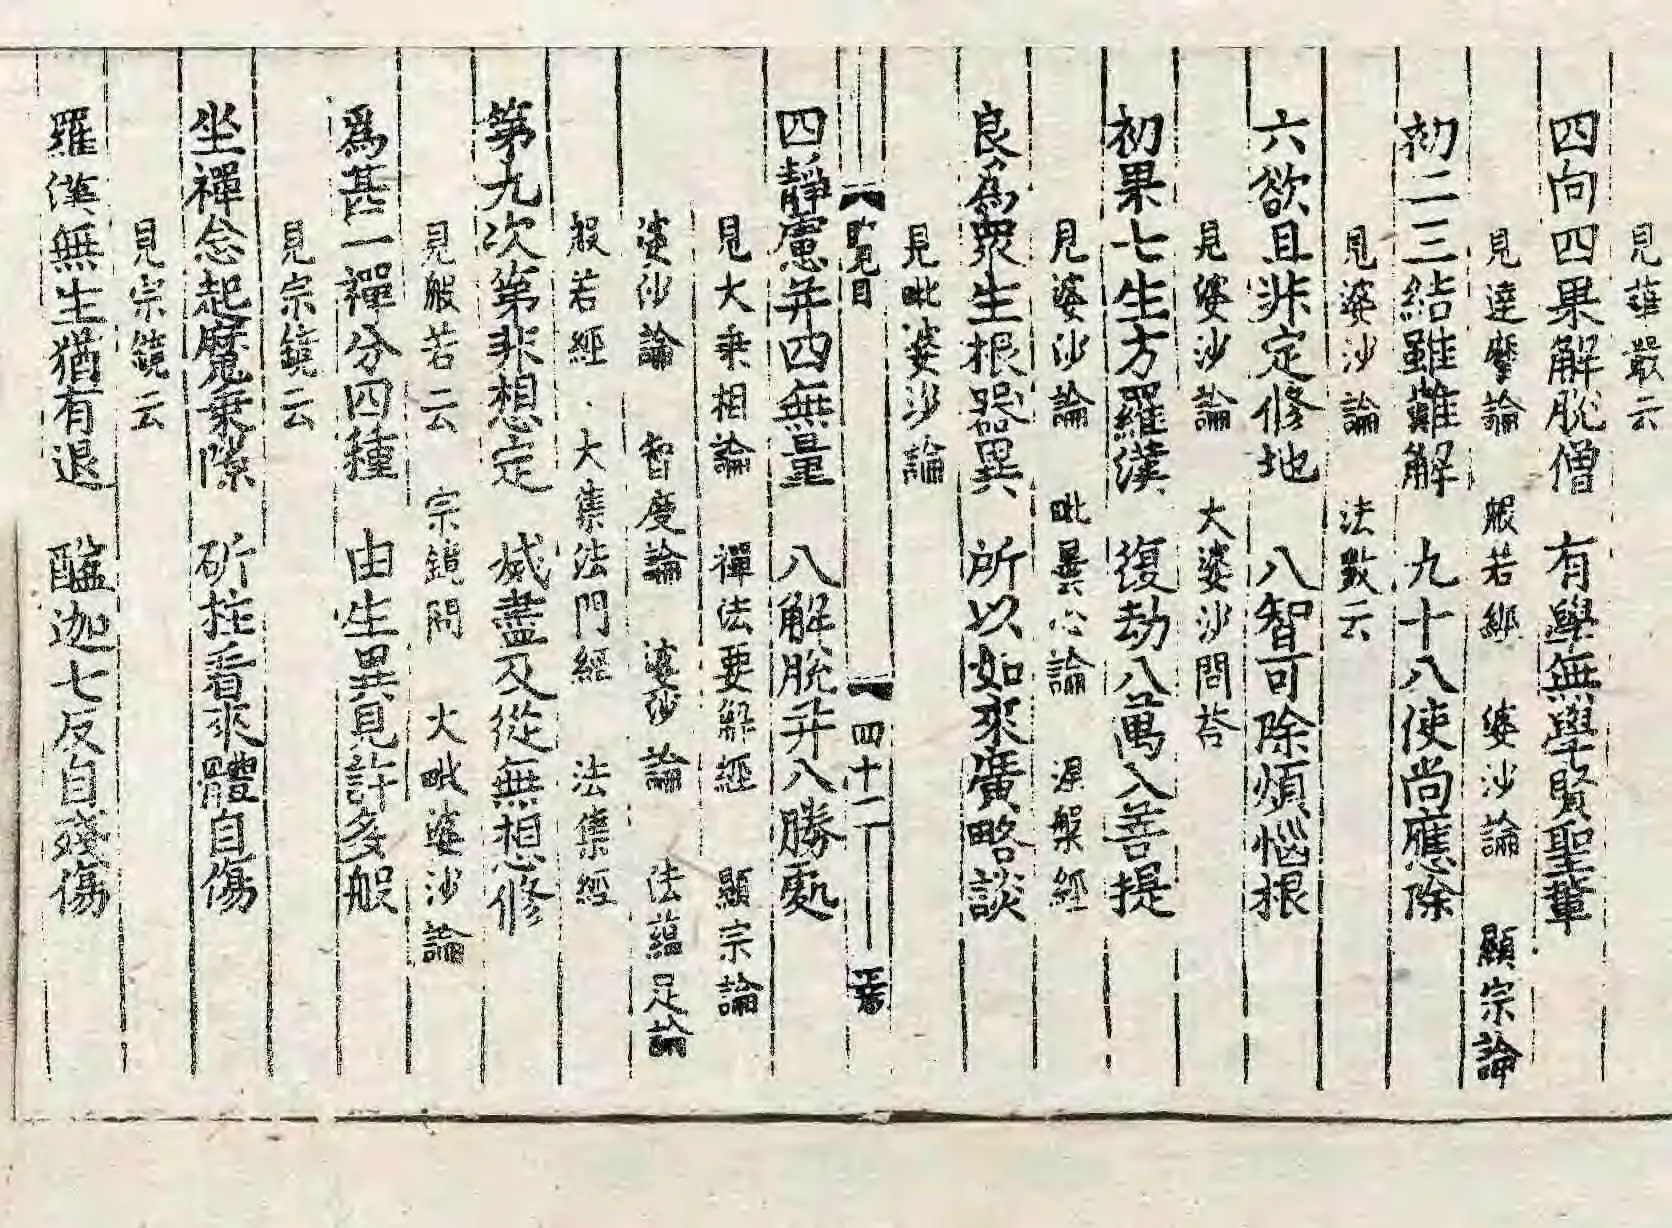 見華嚴云
四向四果解脫僧　有學無學賢聖輩
見達摩論　般若經　婆沙論　顯宗論
初二三結雖難解　九十八使尚應除
見婆沙論　法數云
六欲且非定修地　八智可除煩惱根
見婆沙論　大婆沙問荅
初果七生方羅漢　復劫八萬入菩提
見婆沙論　毗曇心論　涅槃經
良為眾生根器異　所以如來廣略談
見毗婆沙論
四十二
四靜慮并四無量　八解脫并八勝處
見大乘相論　禪法要解經　顯宗論
婆沙論　智度論　婆沙論　法蘊足論
第九次第非想定　滅盡及從無想修
般若經　大集法門經　法集經
爲甚一禪分四種　由生異見許多般
見般若云　宗鏡問　大毗婆沙論
坐禪念起魔乘隙　斫拄看來體自傷
見宗鏡云
羅漢無生猶有退　醯迦七反自殘傷
見宗鏡云